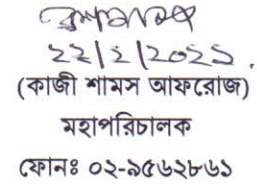 ২২/২/২০২২.
(কাজী শামস আফরোজ)
মহাপরিচালক
ফোনঃ ০২-৯৫৬২৮৬১